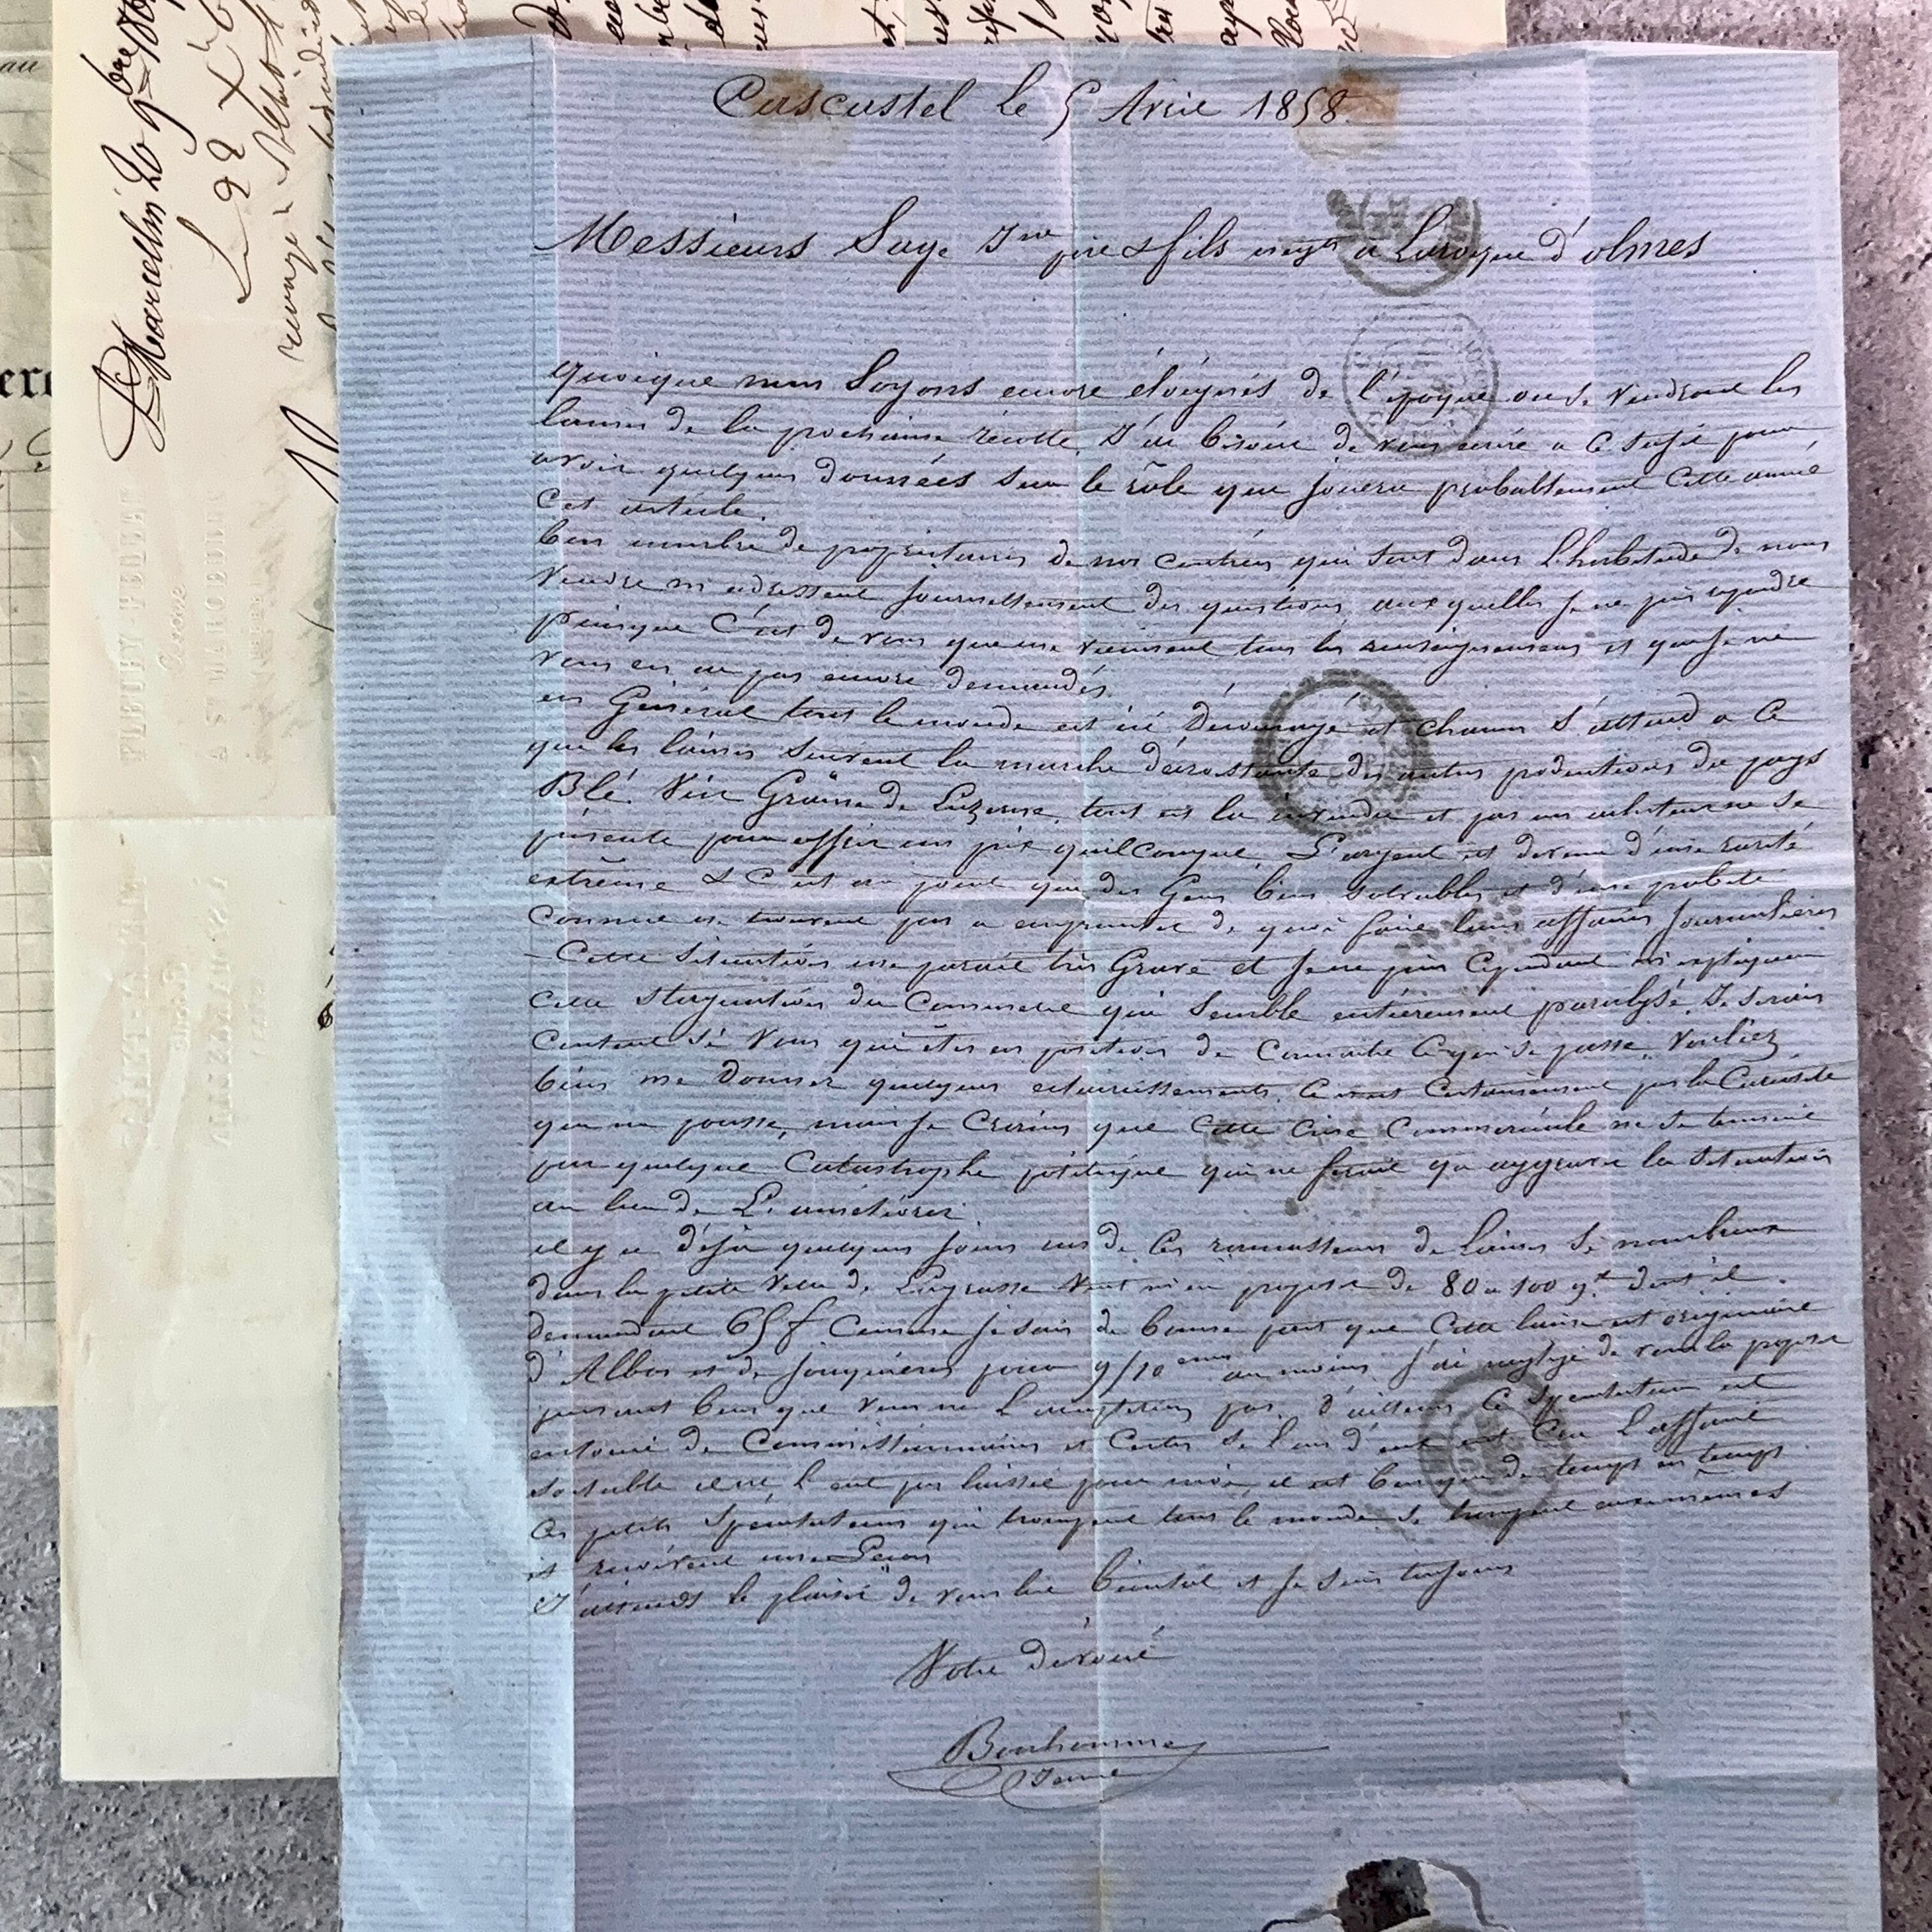 Cascastel le 5 Avril 1858.
Messieurs Saye Jne père & fils negts a Laroque d'olmes
quoique nous Soyons encore éloignés de l'époque ou se Vendront les
laines de la prochaine récolte, J'ai besoin de vous ecrire a ce Sujet pour
avoir quelques données Sur le rôle que Jouera probablement Cette année
Cet article.
bon nombre de propriétaires de nos Contrées qui Sont dans L'habitude de nous
Vendre m'adressent Journellement des questions auxquelles Je ne puis repondre
puisque C'est de vous que me viennent tous les renseignements et que Je ne
vous en ai pas encore demandés.
en Général tout le monde est ici Découragé et chacun S'attend a Ce
que les laines Suivent la marche décroissante des autres productions du pays
Blé. Vin Graine de Luzerne, tout est la invendu et pas un acheteur ne Se
présente pour offrir un prix quilconque, L'argent est devenu d'une rareté
extrême & C'est au point que des Gens bien Solvables et d'une probité
Connue ne trouvent pas a emprunter de quoi faire leurs affaires Journalières
- Cette Situation me parait très Grave et Je ne puis Cependant m'expliquer
Cette Stagnation du Commerce qui Semble entièrement paralysé. Je Serais
Content Si Vous qui êtes en position de Connaitre Ce qui Se passe, Vouliez
bien me Donner quelques eclaircissements. Ce n'est Certainement pas la Curiosité
qui me pousse, mais Je Crains que Cette Crise Commerciale ne Se termine
par quelque Catastrophe politique qui ne ferait qu'aggraver la Situation
au lieu de L'améliorer.
il y a déjà quelques Jours un de Ces ramasseurs de Laines Si nombreux
dans la petite Ville de Lagrasse Vint m'en proposer de 80 a 100 qx dont il
Demandait 65 f Comme Je Sais de bonne part que Cette laine est originaire
d'Albas et de Jonquières pour 9/10emes au moins J'ai negligé de vous la proposer
pensant bien que Vous ne L'accepteriez pas. d'ailleurs Ce Spéculateur est
entouré de Commissionnaires et Certes Si l'un d'eux eut Cru L'affaire
Sortable il ne L'eut pas laissée pour moi, il est bon que de temps en temps
Ces petits Spéculateurs qui trompent tout le monde Se trompent eux mêmes
et reçoivent une Leçon
J'attends le plaisir de vous lire bientot et Je Suis toujours
Votre dévoué
Bonhomme
Jeune